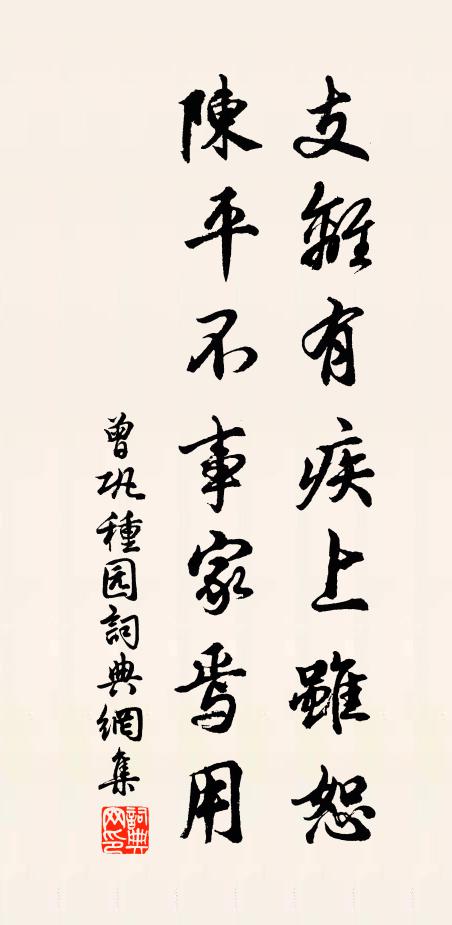 支離有疾上雖恕
陳平不事家焉用
曾巩種园詞典網集
詞典網印